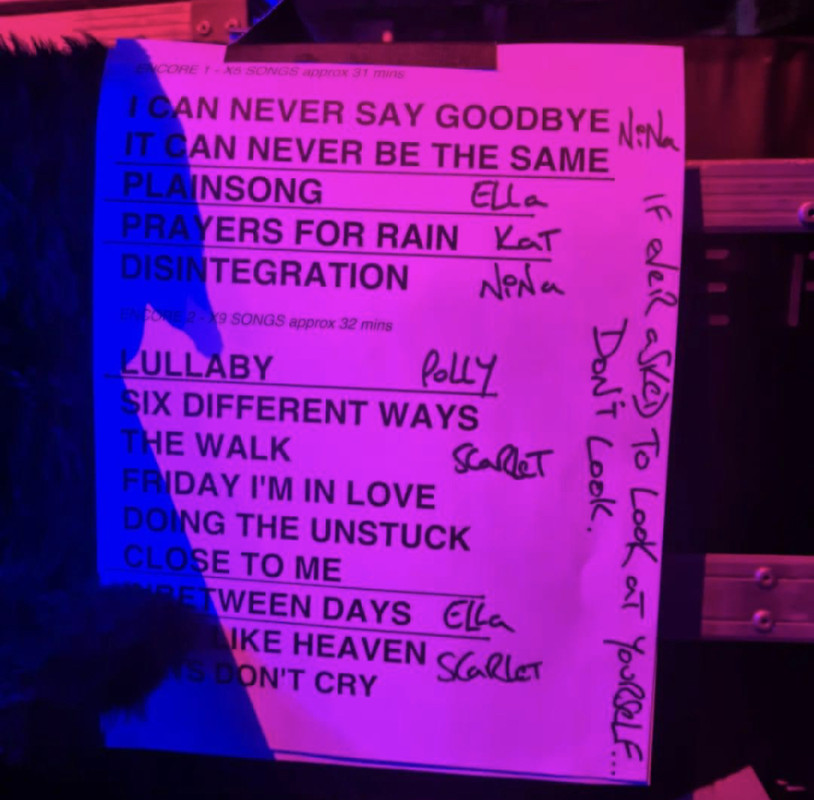 ENCORE 1 - X5 SONGS approx 31 mins
I CAN NEVER SAY GOODBYE
NiNa
IT CAN NEVER BE THE SAME
PLAINSONG ELLa
PRAYERS FOR RAIN KaT
DISINTEGRATION NiNa
ENCORE 2 - X9 SONGS approx 32 mins
LULLABY PoLLY
SIX DIFFERENT WAYS
THE WALK SCaRLeT
FRIDAY I'M IN LOVE
DOING THE UNSTUCK
CLOSE TO ME
INBETWEEN DAYS ELLa
LIKE HEAVEN SCaRLeT
DON'T CRY
IF eVeR asKeD To LooK aT YouRSELF...
DoN'T LooK.